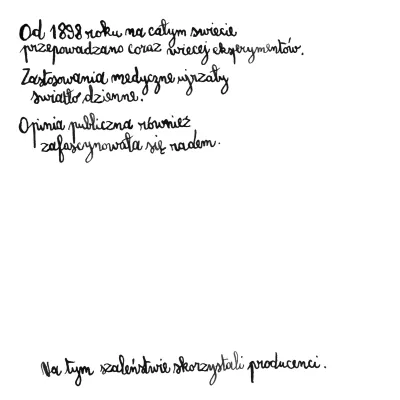 Od 1898 roku na całym świecie
przepowadzano coraz więcej eksperymentów.
Zastosowania medyczne ujrzały
światło dzienne.
Opinia publiczna również
zafascynowała się radem.
Na tym szaleństwie skorzystali producenci.